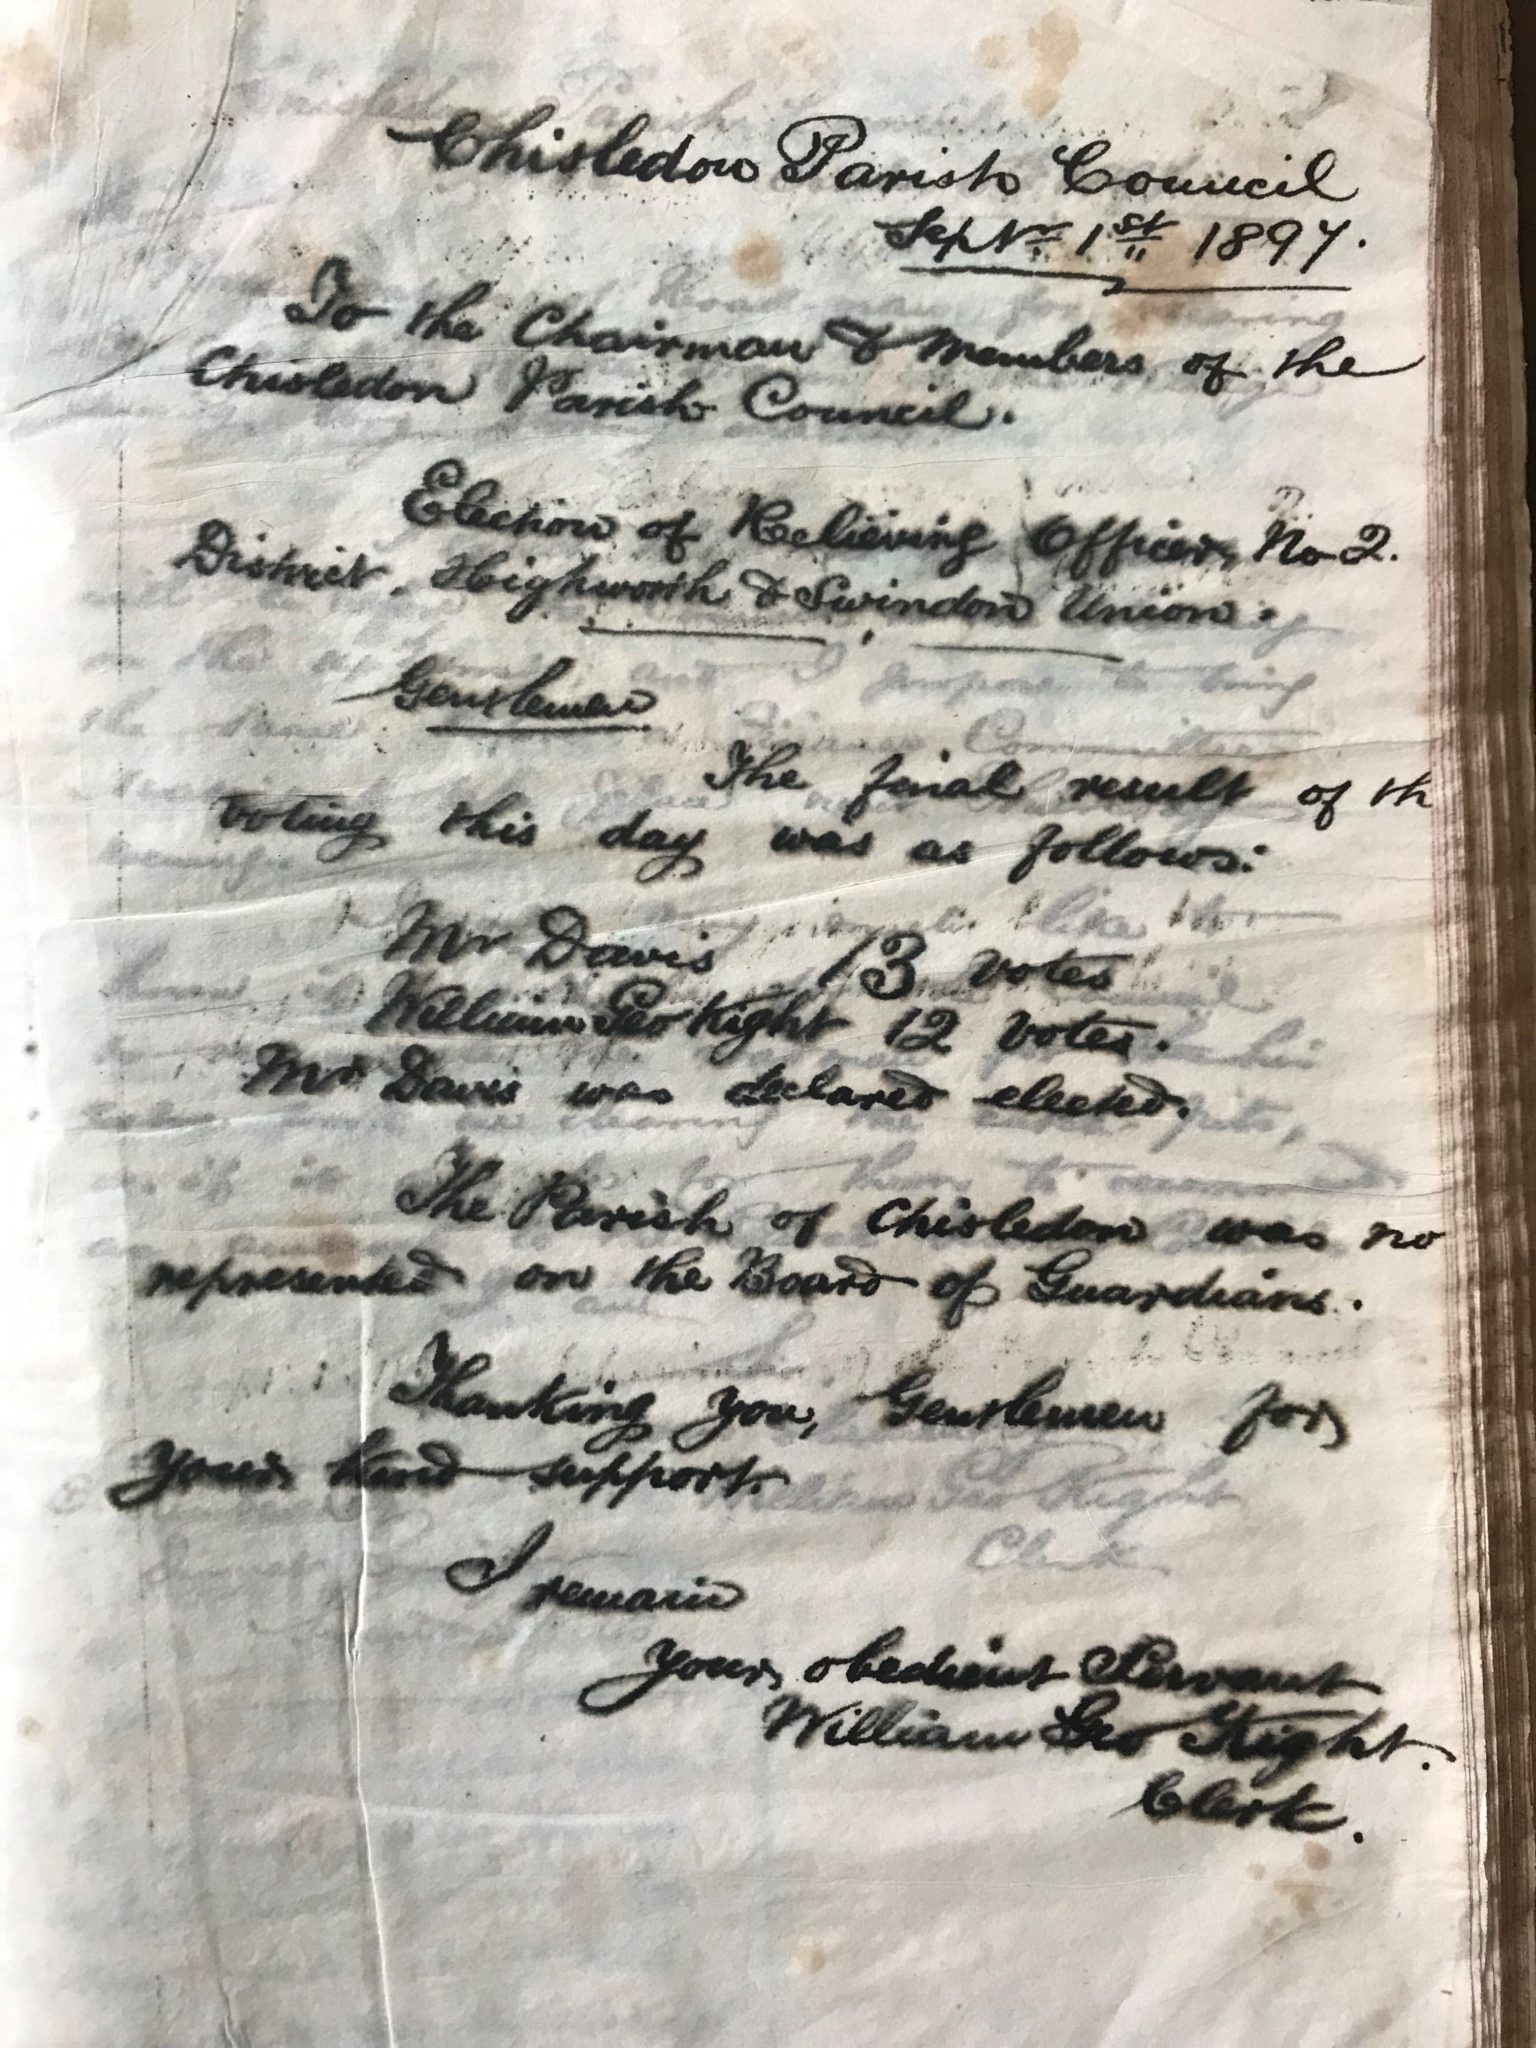 Chisledon Parish Council
Septr 1st 1897.
To the Chairman & Members of the
Chisledon Parish Council.
Election of Relieving Officer, No 2.
District, Highworth & Swindon Union.
Gentlemen
The final result of th
voting this day was as follows:
Mr Davis 13 votes
William Geo Kight 12 votes.
Mr Davis was declared elected.
The Parish of Chisledon was no
represented on the Board of Guardians.
Thanking you, Gentlemen for
your kind support.
I remain
your obedient Servant
William Geo Kight.
Clerk.